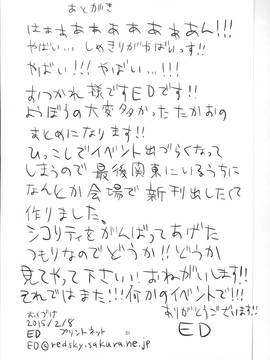 あとがき
はぁぁぁぁぁぁぁぁん!!!
やばい… しめきりがやばいっす!!
やばい!!! やばい…!!!
おつかれ様ですEDです!!
ようぼうの大変多かったたかおの
まとめになります!!
ひっこしでイベント出づらくなって
しまうので最後関東にいるうちに
なんとか会場で新刊出したくて
作りました。
シコリティをがんばってあげた
つもりなのでどうか!!どうか
見てやって下さい!!おねがいします!!
それではまた!!!何かのイベントで!!!
ありがとうございます!!
ED
おくづけ
2015/2/8
ED プリントネット
ED@redsky.sakura.ne.jp